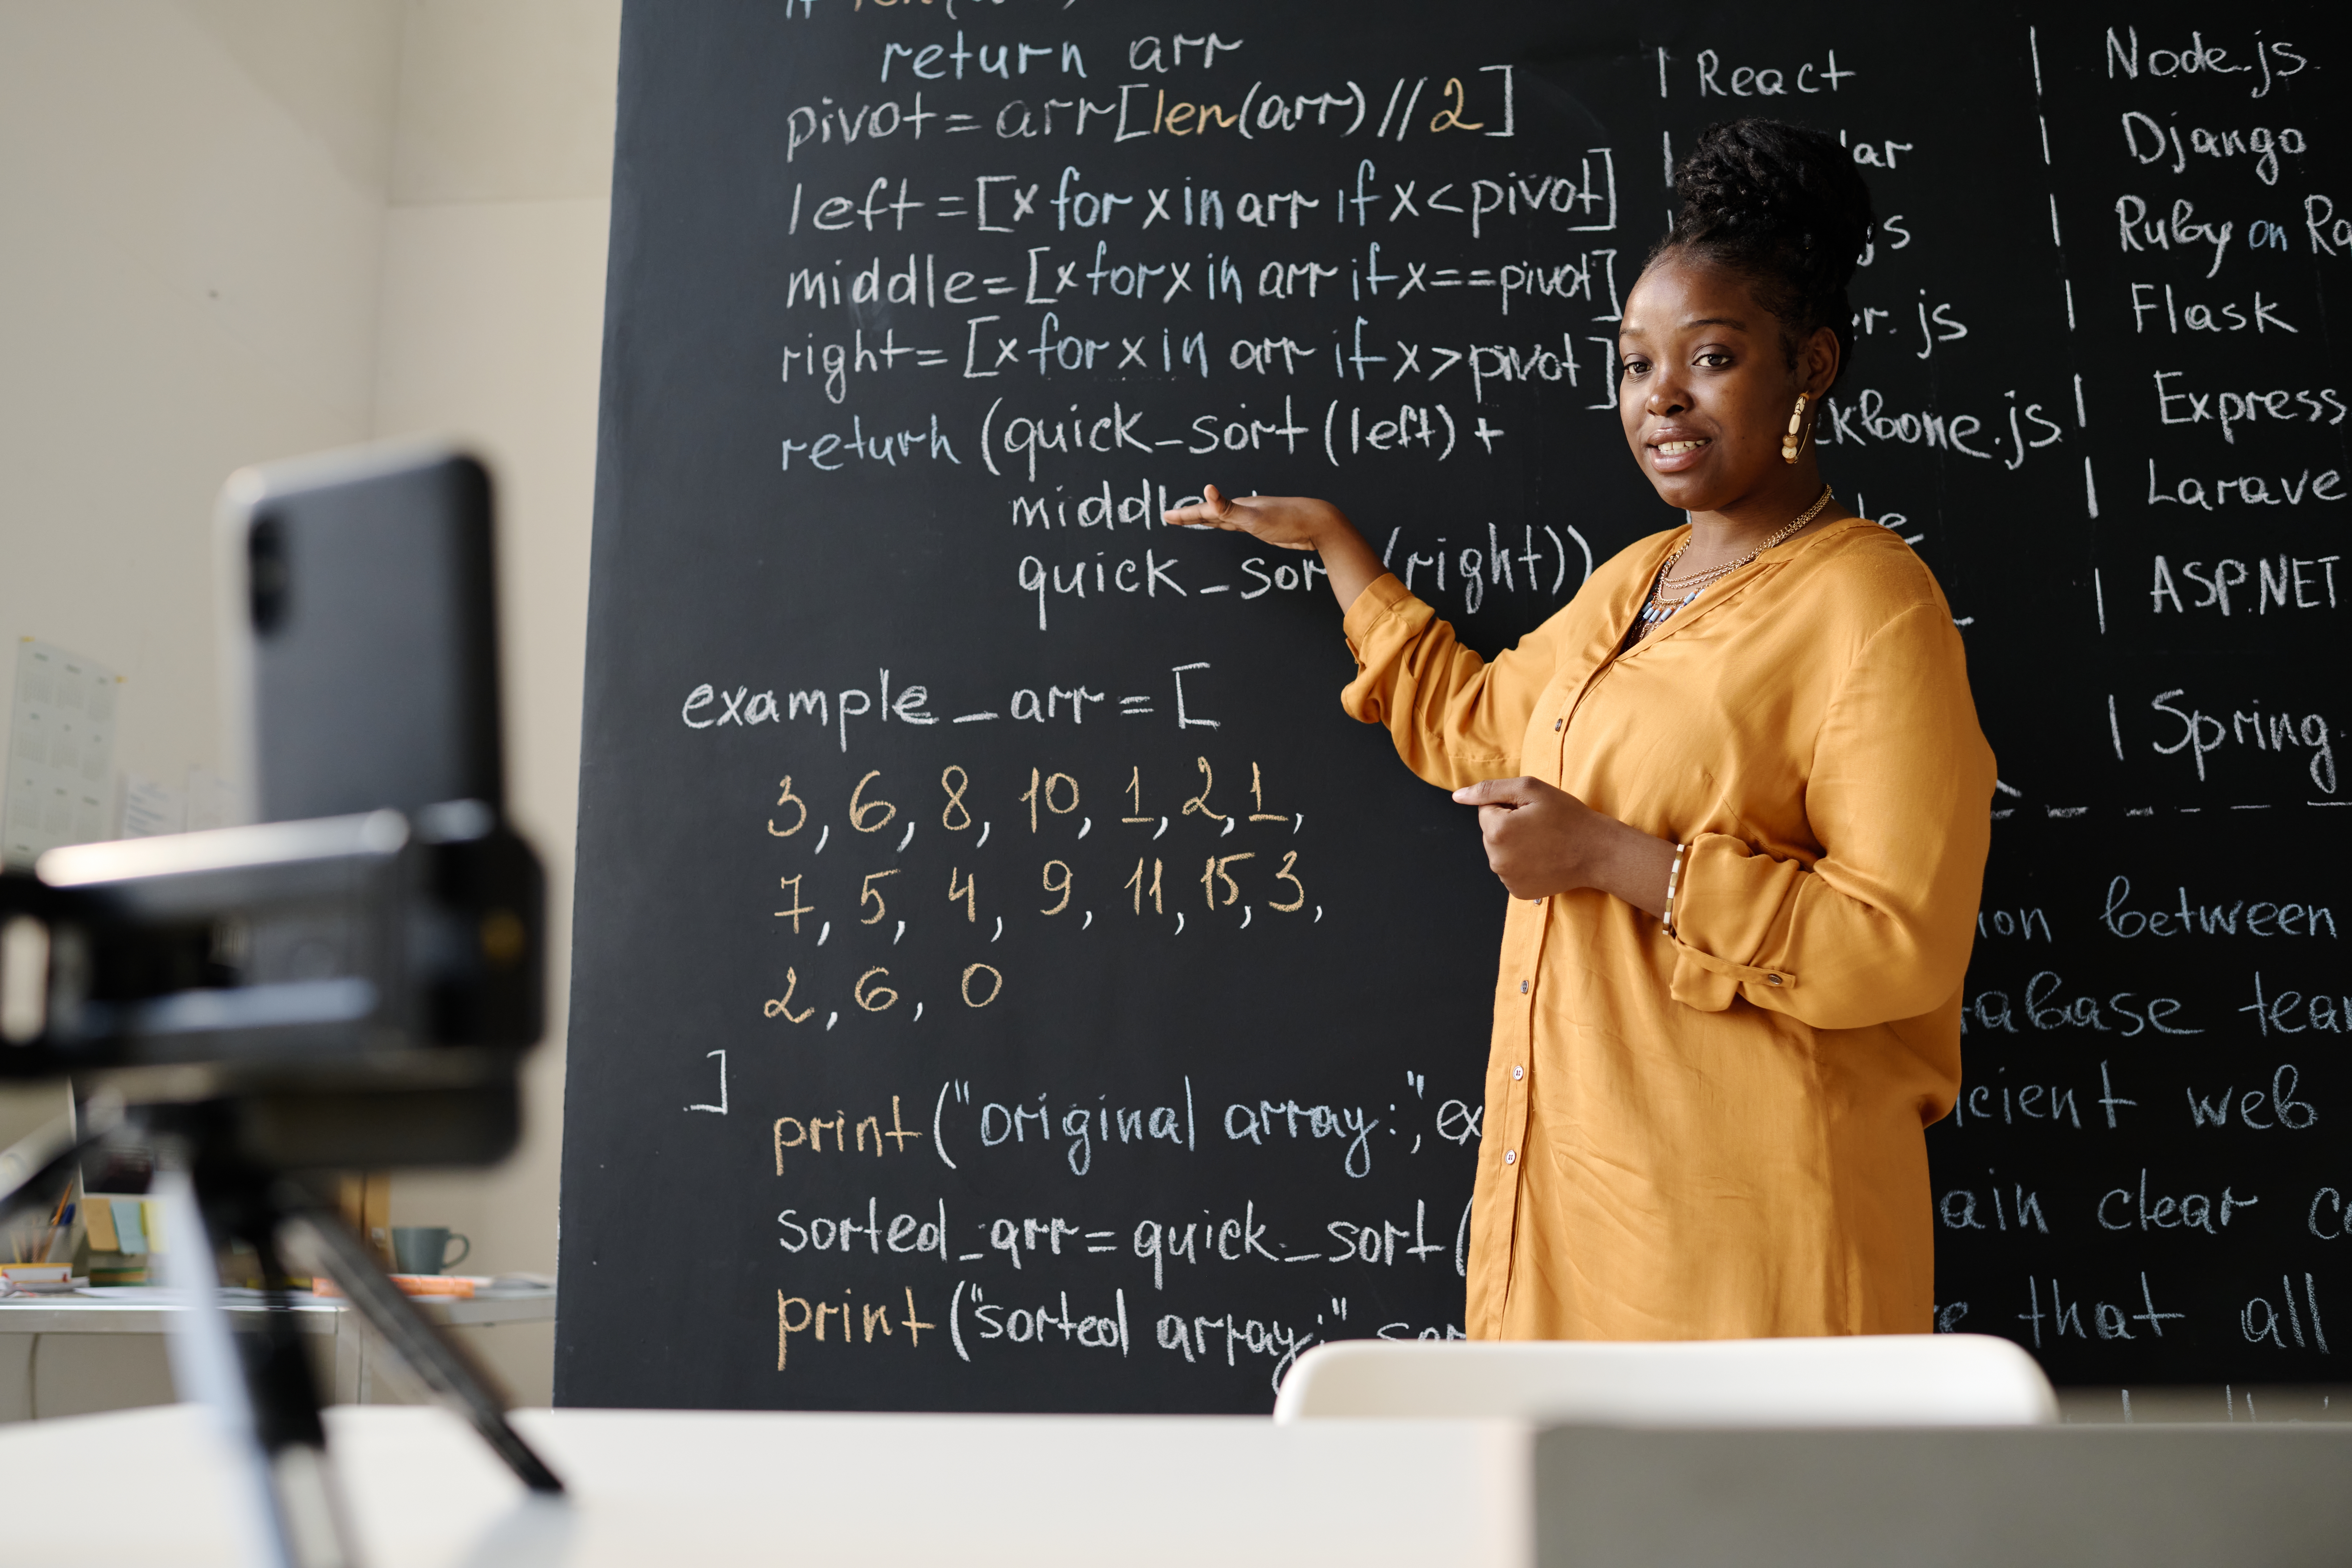 return arr
pivot = arr[len(arr) // 2]
left = [x for x in arr if x < pivot]
middle = [x for x in arr if x == pivot]
right = [x for x in arr if x > pivot]
return (quick_sort (left) +
middle
quick_sor (right))
example_arr = [
3, 6, 8, 10, 1, 2, 1,
7, 5, 4, 9, 11, 15, 3,
2, 6, 0
]
print ("original array:", ex
sorted_arr = quick_sort (
print ("sorted array:" sor
| React
lar
.js
er.js
ckbone.js
| Node.js
| Django
| Ruby on Ra
| Flask
| Express
| Larave
| ASP.NET
| Spring
ion between
tabase tea
icient web
ain clear c
e that all